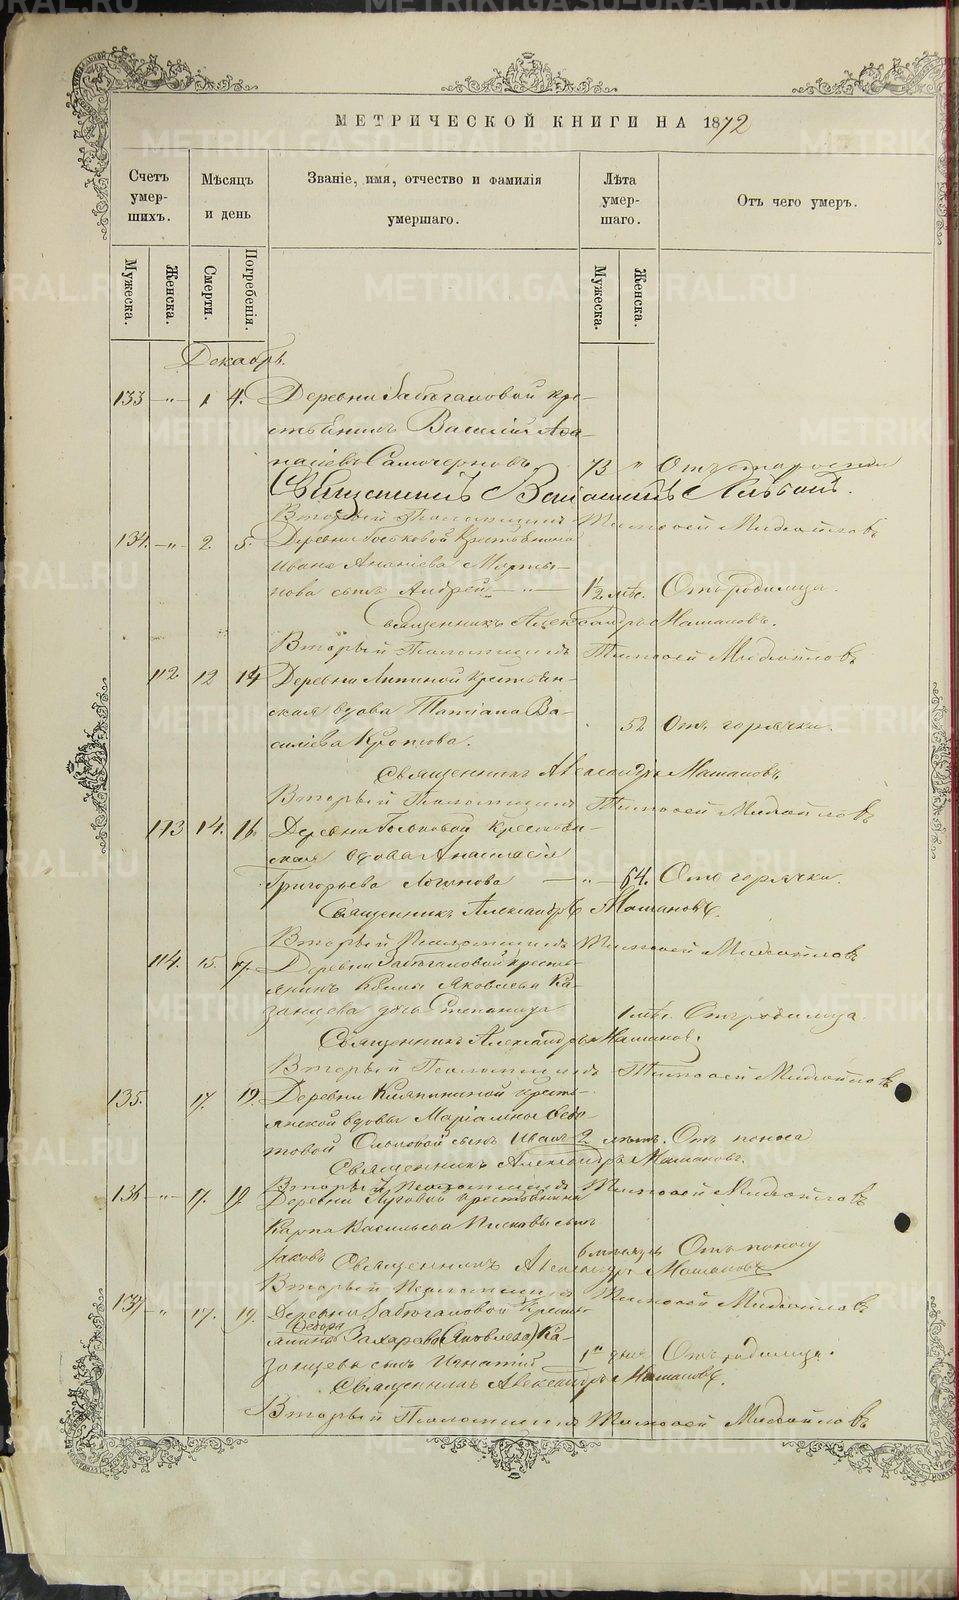 МЕТРИЧЕСКОЙ КНИГИ НА 1872
Счетъ умер- шихъ.
Мѣсяцъ и день
Званіе, имя, отчество и фамилія умершаго.
Лѣта умер- шаго.
Отъ чего умеръ.
Мужеска.
Женска.
Смерти.
Погребенія.
Мужеска.
Женска.
Декабрь.
133 -"- 1 4. Деревни кре-
стьянинъ Василій Аѳа-
насіевъ Самочерновъ. 73 " Отъ старости
Священникъ
Вторый Псаломщикъ Тимоѳей Михайловъ
134. -"- 2. 5. Деревни Крестьянина
Ивана Ананіева Марты-
нова сынъ Андрей -"- 1/2 лѣт. Отъ родимца.
Священникъ Александръ
Вторый Псаломщикъ Тимоѳей Михайловъ
112 12 14 Деревни Липиной крестьян-
ская вдова Татіана Ва-
силіева 52 Отъ горячки.
Священникъ Александръ
Вторый Псаломщикъ Тимоѳей Михайловъ
113 14. 16. Деревни крестьян-
ская вдова Анастасія
Григорьева Логинова -"- 64. Отъ горячки.
Священникъ Александръ
Вторый Псаломщикъ Тимоѳей Михайловъ
114. 15. 17. Деревни кресть-
янинъ Яковлева Ка-
занцева дочь Степанида 1 лѣт. Отъ родимца.
Священникъ Александръ
Вторый Псаломщикъ Тимоѳей Михайловъ
135. 17. 19. Деревни кресть-
янской вдовы
сынъ Иванъ 2 лѣтъ. Отъ поноса
Священникъ Александръ
Вторый Псаломщикъ Тимоѳей Михайловъ
136 -"- 17. 19 Деревни крестьянина
Карпа Васильева сынъ
Яковъ 6 мѣсяцъ Отъ поносу
Священникъ Александръ
Вторый Псаломщикъ Тимоѳей Михайловъ
137 -"- 17. 19. Деревни кресть-
янина Захарова (Яковлева) Ка-
занцева сынъ Игнатій 1 дня Отъ родимца.
Священникъ Александръ
Вторый Псаломщикъ Тимоѳей Михайловъ
METRIKI.GASO-URAL.RU